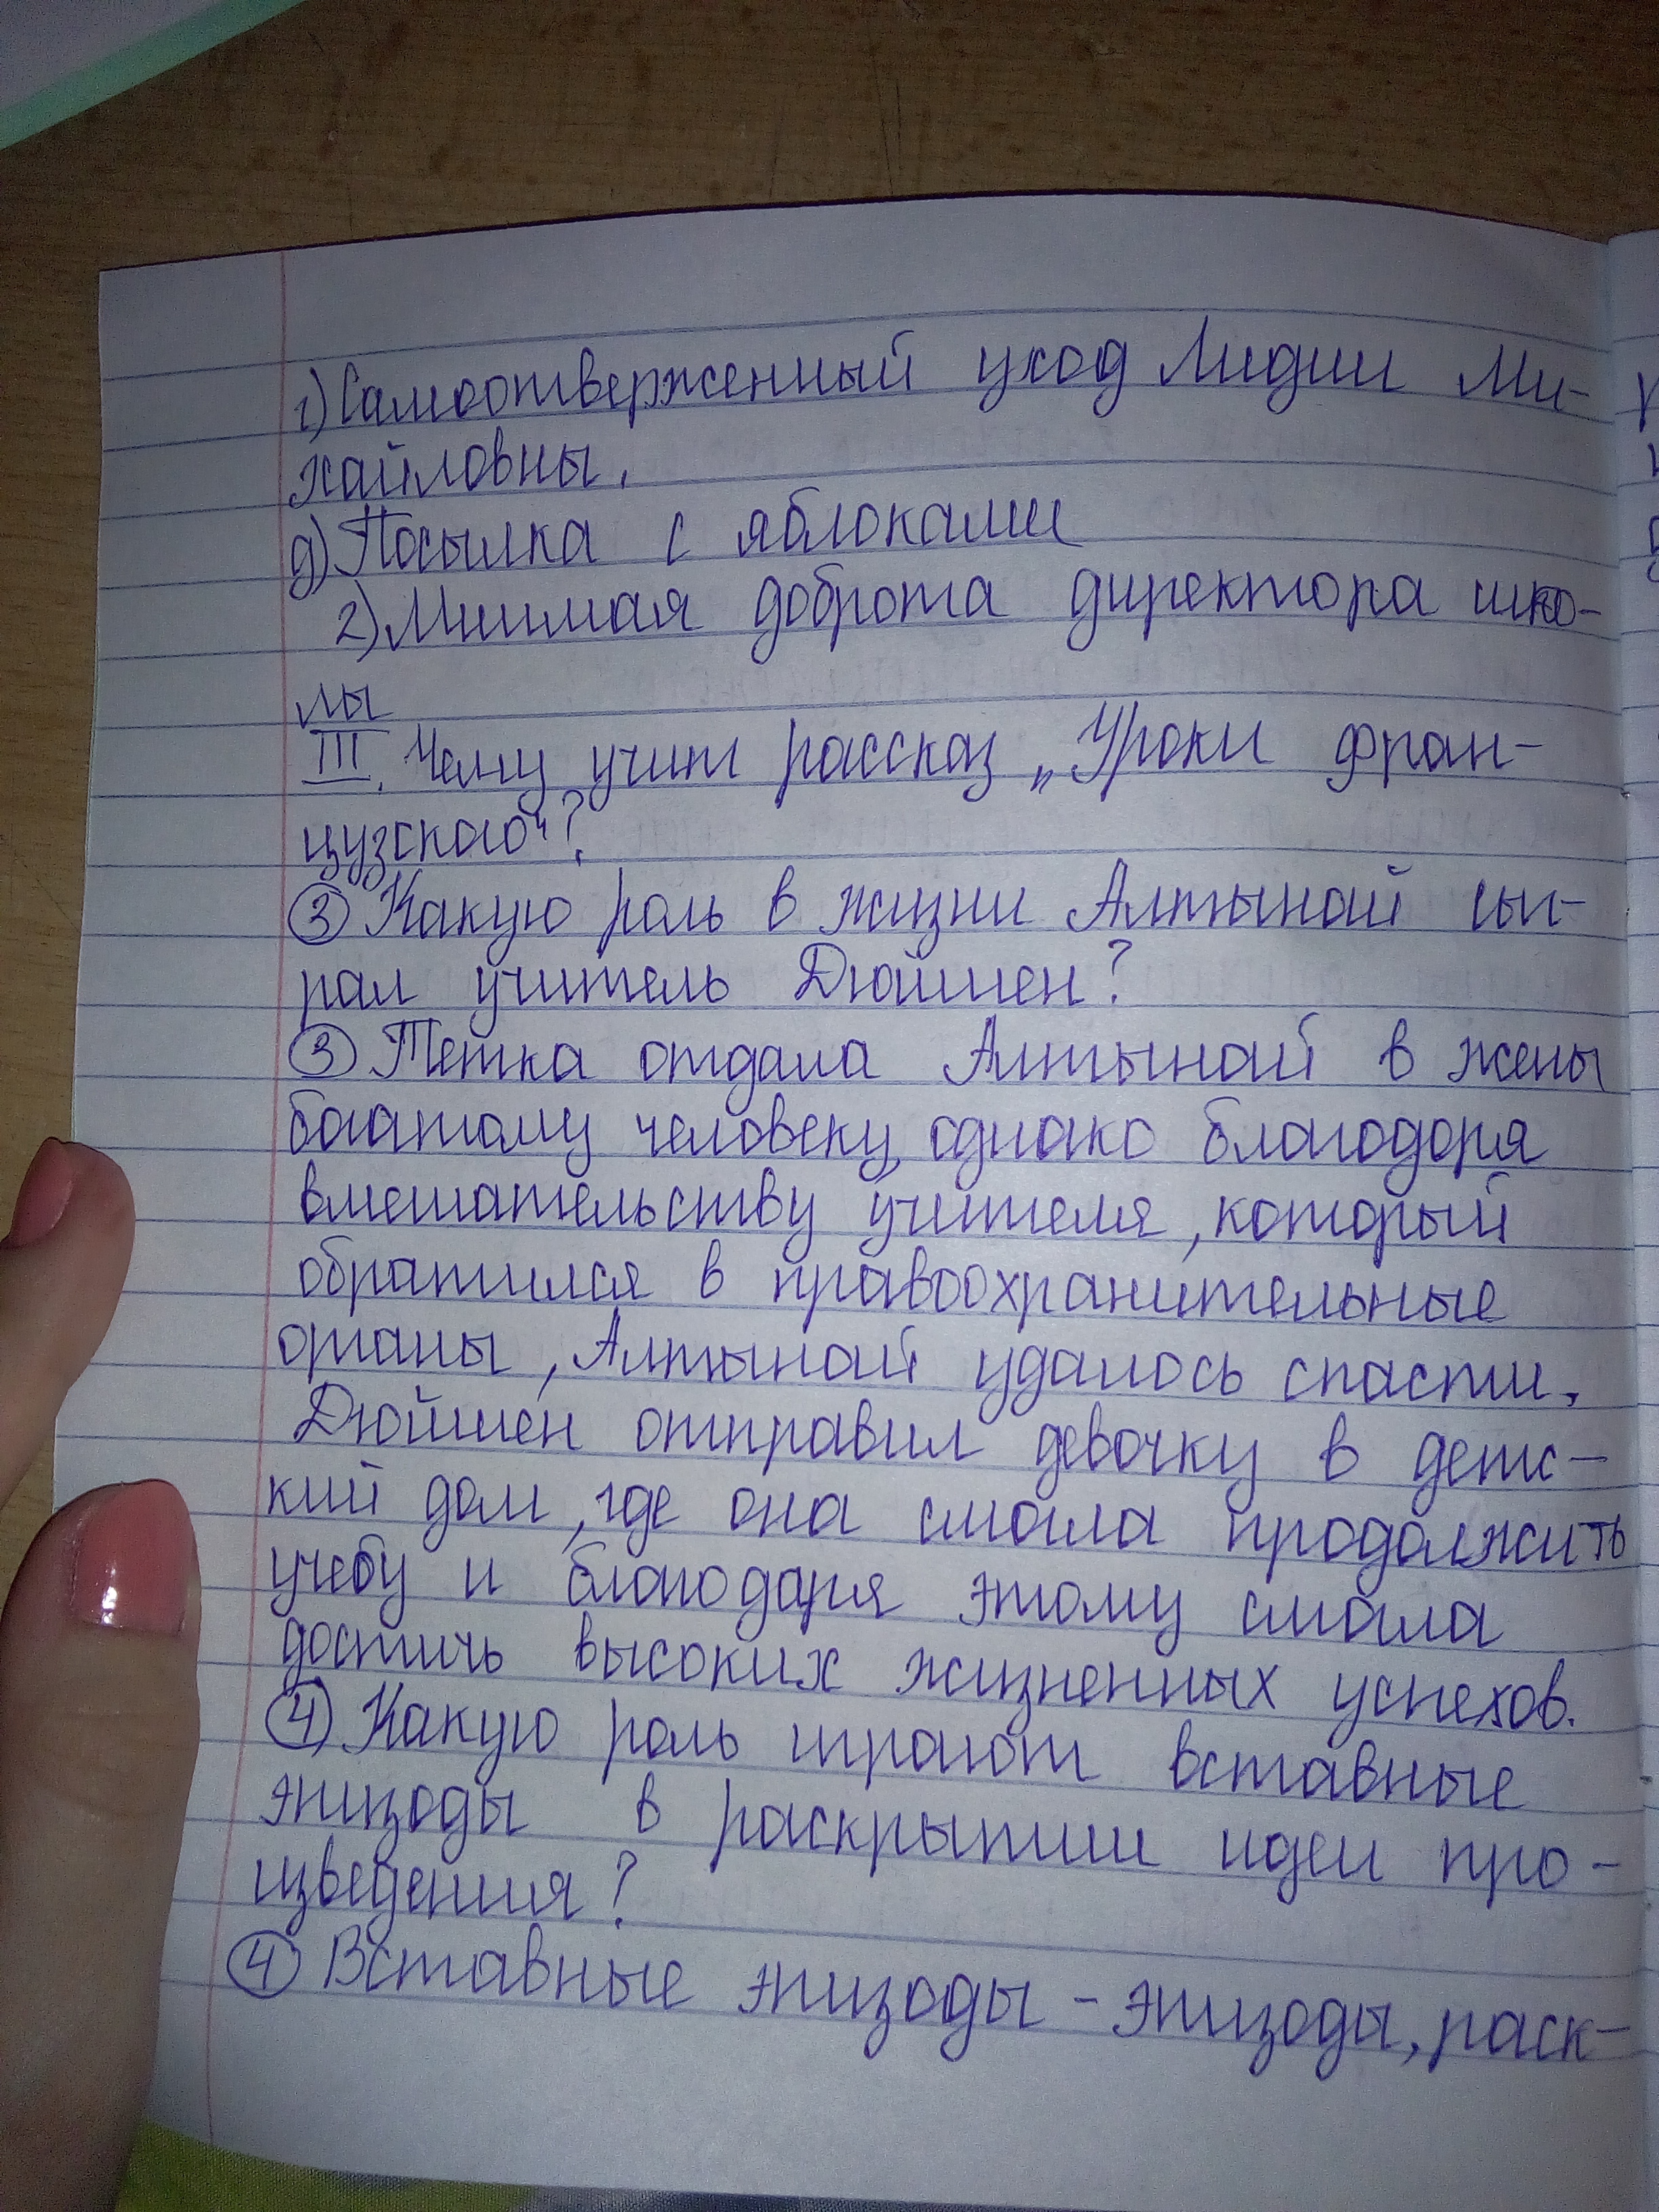 г) Самоотверженный уход Лидии Ми-
хайловны.
д) Посылка с яблоками
2) Мнимая доброта директора шко-
лы
III. Чему учит рассказ „Уроки фран-
цузского"?
③ Какую роль в жизни Алтынай сы-
грал учитель Дюйшен?
③ Тетка отдала Алтынай в жены
богатому человеку, однако благодоря
вмешательству учителя, который
обратился в правоохранительные
органы, Алтынай удалось спасти.
Дюйшен отправил девочку в детс-
кий дом, где она смогла продолжить
учебу и благодаря этому смогла
достичь высоких жизненных успехов.
④ Какую роль играют вставные
эпизоды в раскрытии идеи про-
изведения?
④ Вставные эпизоды - эпизоды, раск-